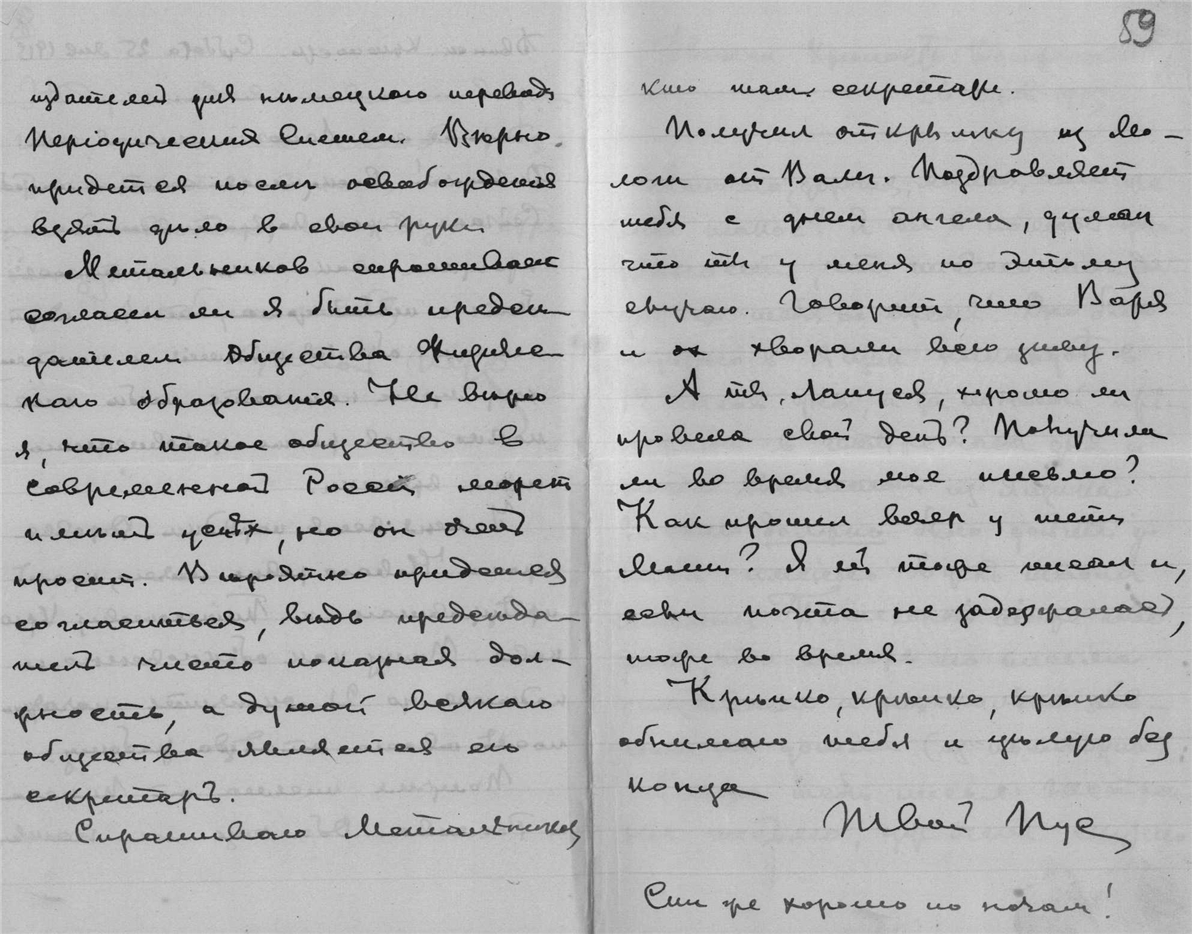 издателей для нѣмецкаго перевода
Періодическія Систем. Вѣрно,
придется послѣ освобожденія
взять дѣло в свои руки.
Метальников спрашивает
согласен ли я быть предсѣ-
дателем Общества Физичес-
каго Образованія. Не вѣрю
я, что такое общество в
современной Россіи может
имѣть успѣх, но он очень
просит. Вѣроятно придется
согласиться, вѣдь предсѣда-
тель чисто показная дол-
жность, а душой всякаго
общества является его
секретарь.
Спрашиваю Метальникова
89
кто там секретарь.
Получил открытку из Мо-
логи от Вали. Поздравляет
тебя с днем ангела, думая
что ты у меня по этому
случаю. Говорит, что Варя
и он хворали всю зиму.
А ты, Лапуся, хорошо ли
провела свой день? Получила
ли во время мое письмо?
Как прошел вечер у тети
Маши? Я ей тоже писал и,
если почта не задержала,
тоже во время.
Крѣпко, крѣпко, крѣпко
обнимаю тебя и цѣлую без
конца
Твой Пус
Спи же хорошо по ночам!